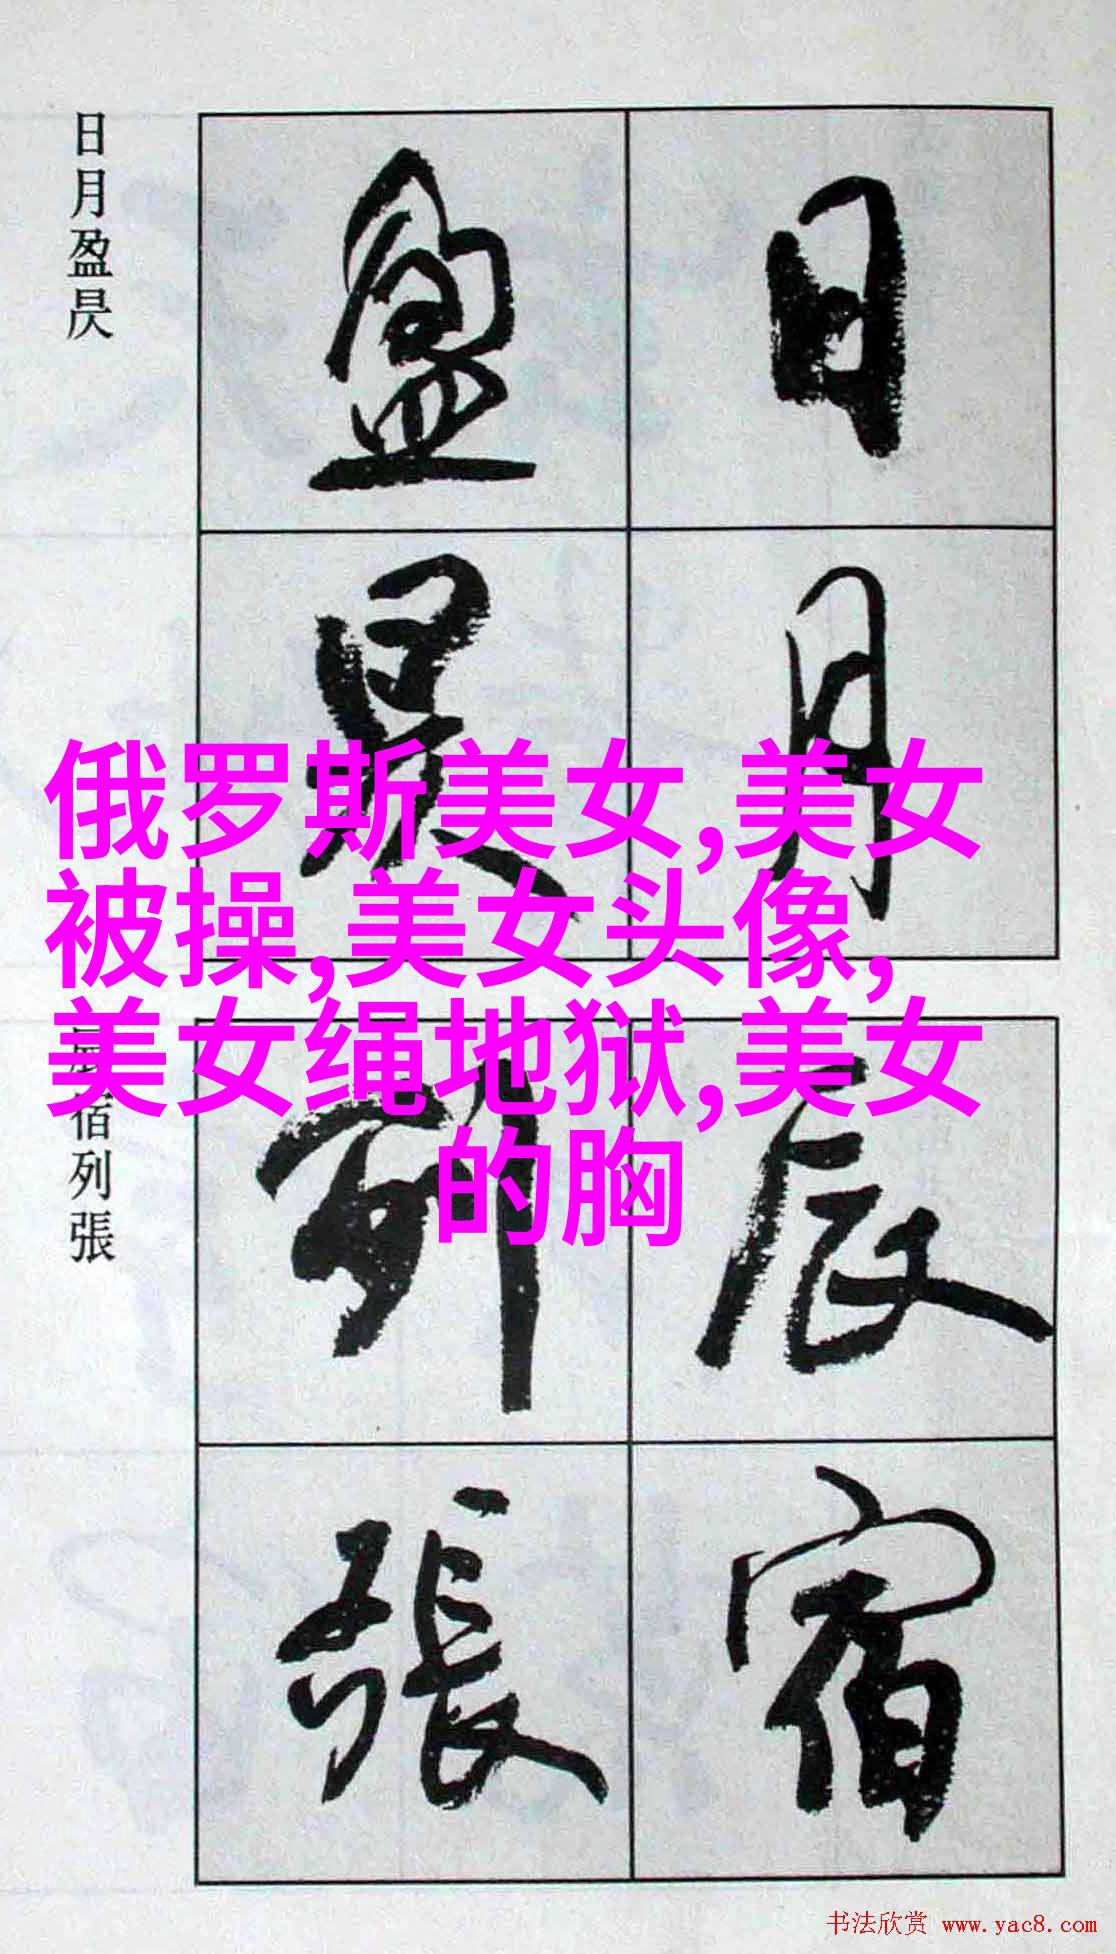 日月盈昃
日月
盈昃
俄罗斯美女,美女
被操,美女头像,
美女绳地狱,美女
的胸
宿列張
辰宿
列張
书法欣赏 www.yac8.com